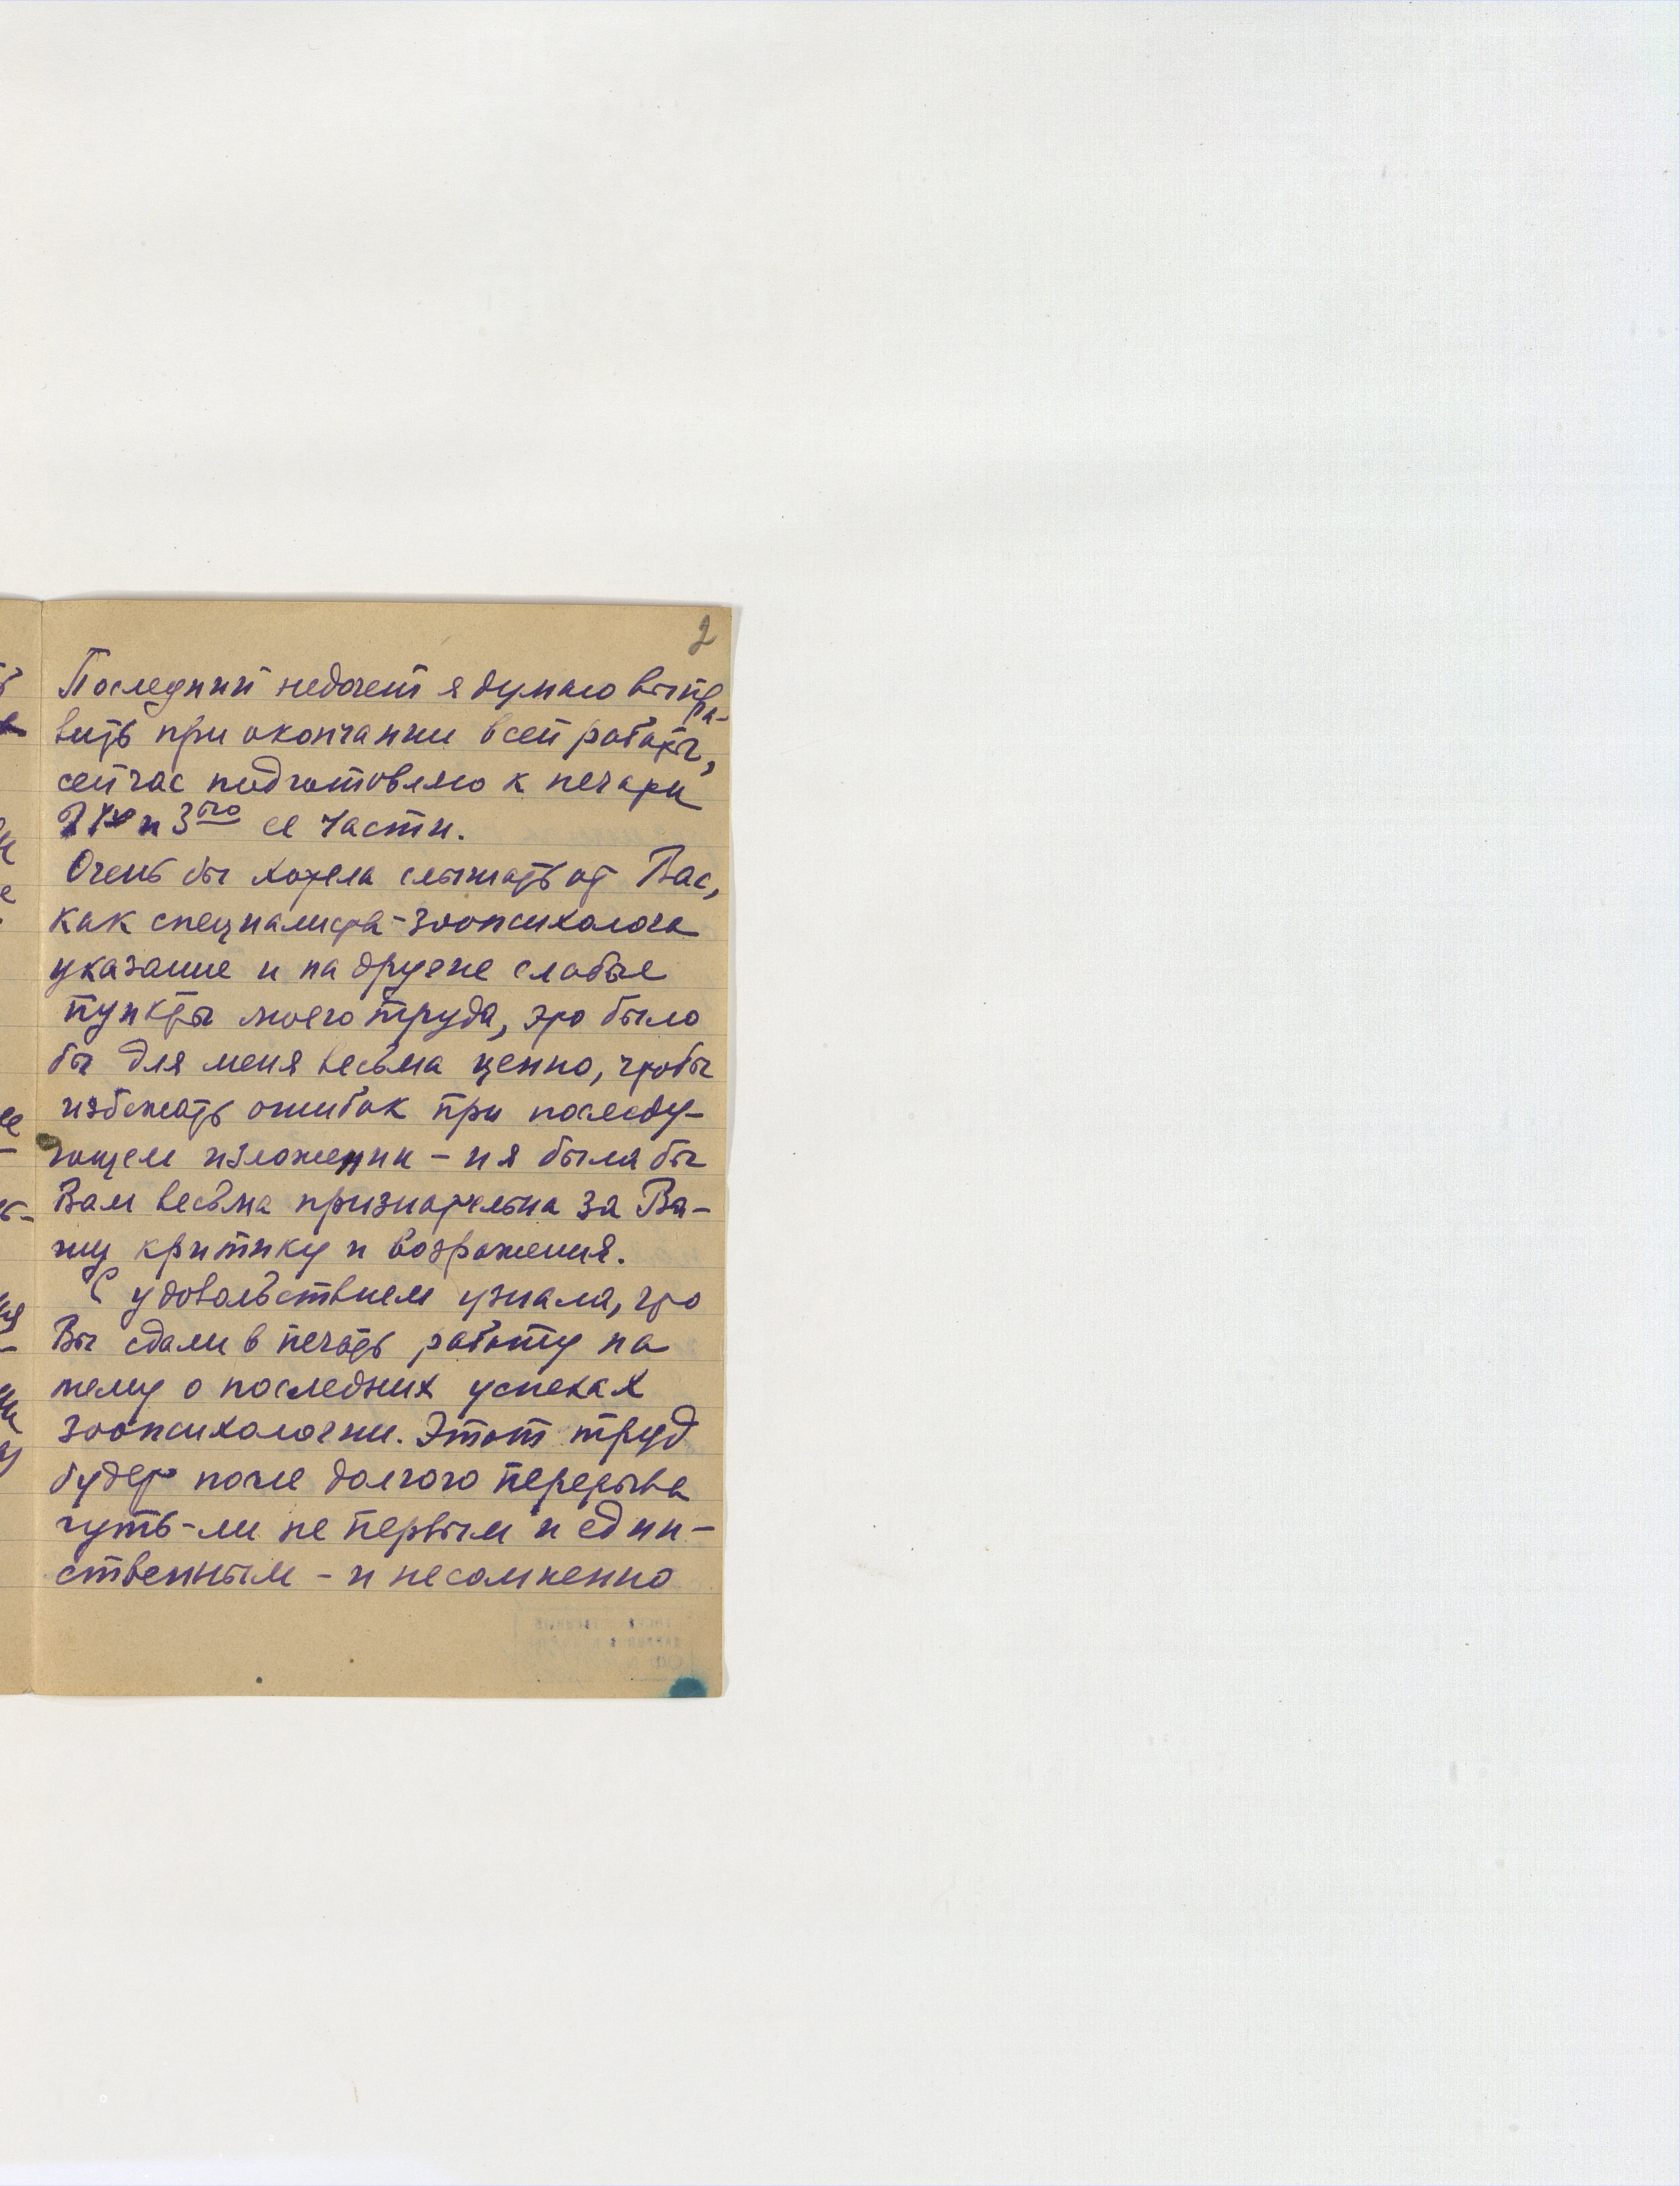 2
Последний недочет я думаю выпра-
вить при окончании всей работы,
сейчас подготовляю к печати
2ую и 3ью ее части.
Очень бы хотела слышать от Вас,
как специалиста-зоопсихолога
указание и на другие слабые
пункты моего труда, это было
бы для меня весьма ценно, чтобы
избежать ошибок при последу-
ющем изложении – и я была бы
Вам весьма признательна за Ва-
шу критику и возражения.
С удовольствием узнала, что
Вы сдали в печать работу на
тему о последних успехах
зоопсихологии. Этот труд
будет после долгого перерыва
чуть-ли не первым и един-
ственным – и несомненно